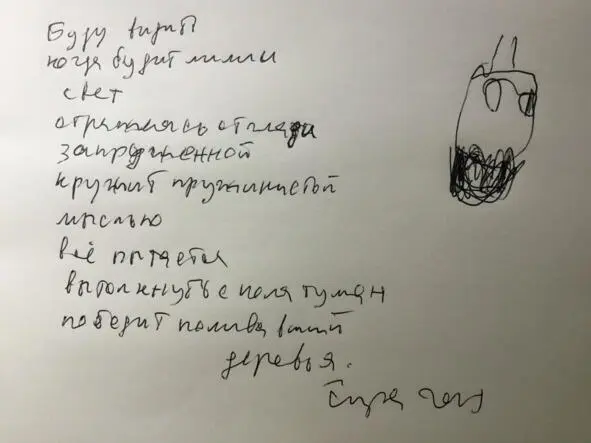 Буду видит
когда будит ли мы
свет
отражаясь от глади
запруженной
кружит пружинистой
мыслью
всё пытается
вытолкнуть с поля туман
победит поливавший
деревья.